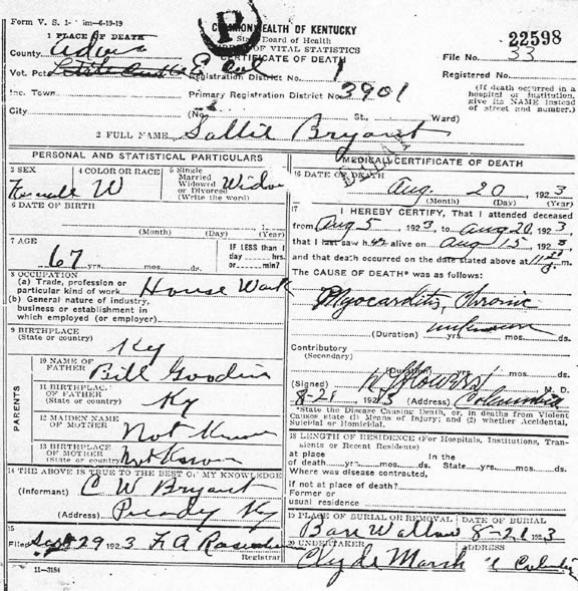 Form V. S. 1- 6-19-19
COMMONWEALTH OF KENTUCKY
State Board of Health
OF VITAL STATISTICS
CERTIFICATE OF DEATH
22598
File No. 33
1 PLACE OF DEATH
County Adair
Vot. Pct.
Registration District No. 1
Registered No.
Inc. Town
Primary Registration District No. 3901
(If death occurred in a hospital or institution, give its NAME instead of street and number.)
City (No. St., Ward)
2 FULL NAME Sallie Bryant
PERSONAL AND STATISTICAL PARTICULARS
3 SEX Female
4 COLOR OR RACE W
5 Single Married Widowed or Divorced (Write the word) Widow
6 DATE OF BIRTH
(Month) (Day) (Year)
7 AGE 67 yrs. mos. ds.
IF LESS than 1 day hrs. or min?
8 OCCUPATION
(a) Trade, profession or particular kind of work House Work
(b) General nature of industry, business or establishment in which employed (or employer)
9 BIRTHPLACE
(State or country) Ky
PARENTS
10 NAME OF FATHER Bill Goodin
11 BIRTHPLACE OF FATHER (State or country) Ky
12 MAIDEN NAME OF MOTHER Not Known
13 BIRTHPLACE OF MOTHER (State or country) Not Known
14 THE ABOVE IS TRUE TO THE BEST OF MY KNOWLEDGE
(Informant) C W Bryant
(Address) Ky
15
Filed Sept 29 1923
Registrar
11-3184
MEDICAL CERTIFICATE OF DEATH
16 DATE OF DEATH
Aug. 20 1923
(Month) (Day) (Year)
17 I HEREBY CERTIFY, That I attended deceased
from Aug 5 1923, to Aug 20, 1923,
that I last saw her alive on Aug 15 1923
and that death occurred on the date stated above at 11 m.
The CAUSE OF DEATH* was as follows:
Myocarditis, Chronic
(Duration) unknown yrs. mos. ds.
Contributory
(Secondary)
(Duration) yrs. mos. ds.
(Signed) M. D.
8-21 1923 (Address) Columbia
*State the Disease Causing Death, or, in deaths from Violent
Causes state (1) Means of Injury; and (2) whether Accidental,
Suicidal or Homicidal.
18 LENGTH OF RESIDENCE (For Hospitals, Institutions, Transients or Recent Residents)
at place of death yrs. mos. ds. In the State yrs. mos. ds.
Where was disease contracted,
if not at place of death?
Former or
usual residence
19 PLACE OF BURIAL OR REMOVAL
DATE OF BURIAL
Bare Wallow 8-21 1923
20 UNDERTAKER ADDRESS
Clyde Marsh Columbia